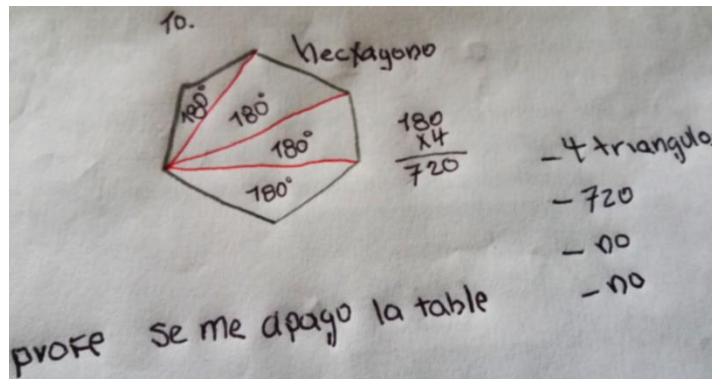 10.
hecxagono
180°
180°
180°
180°
180
x4
720
- 4 triangulo
- 720
- no
- no
profe se me apago la table